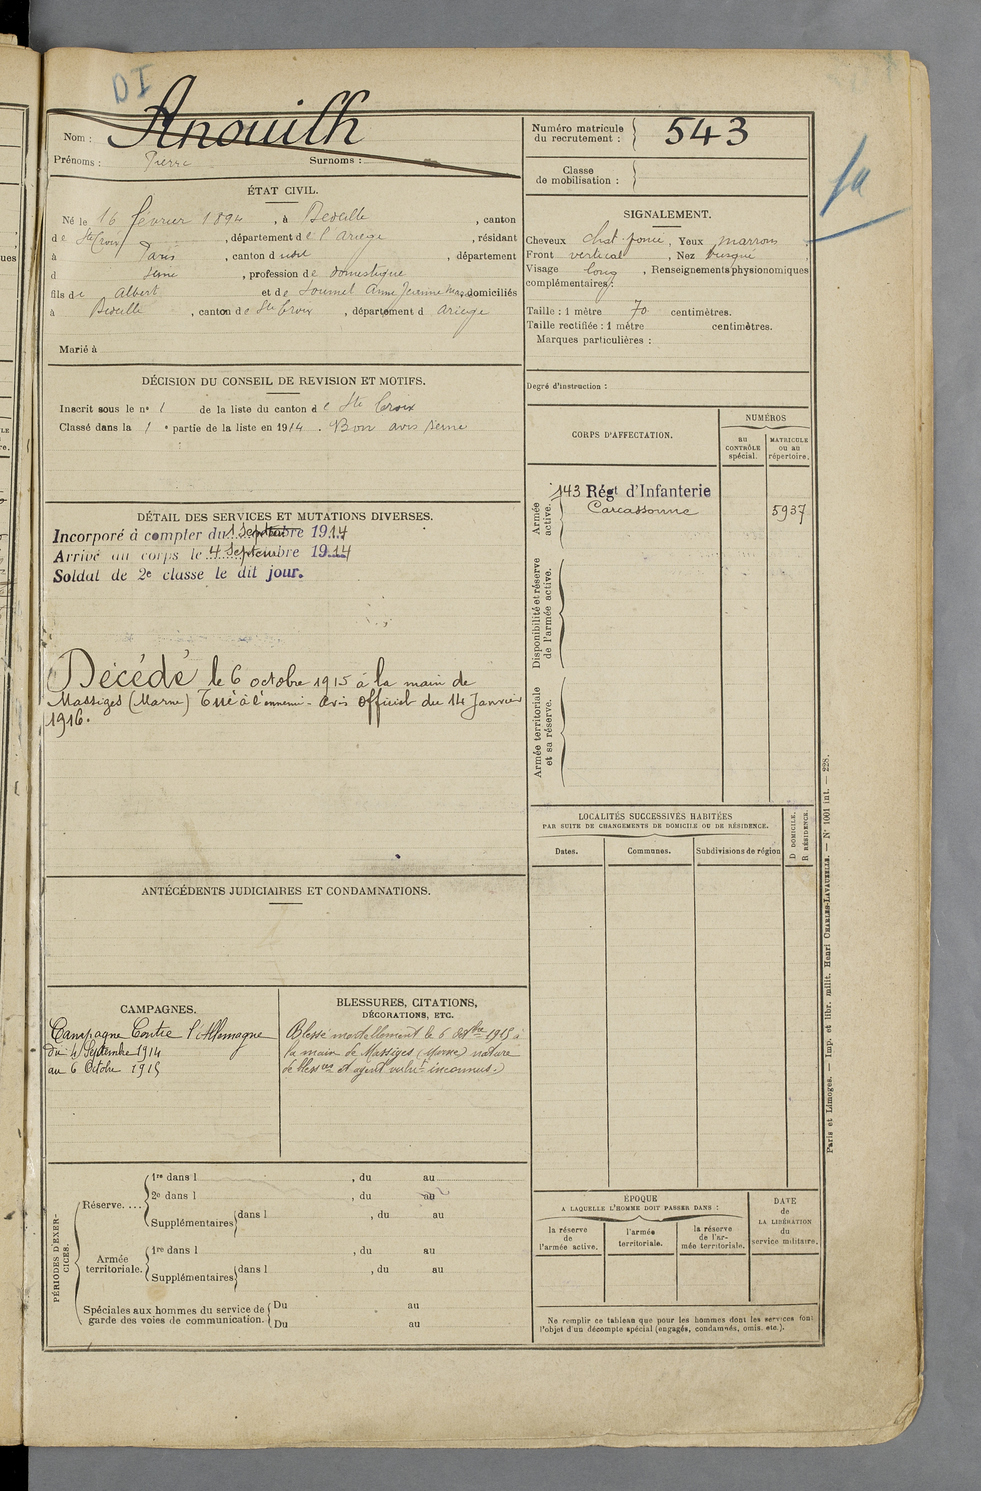 DI
Nom : Anouilh
Prénoms : Pierre Surnoms :
Numéro matricule du recrutement : 543
Classe de mobilisation :
1a
ÉTAT CIVIL.
Né le 16 février 1894, à Bedeille, canton
de Ste Croix, département de l'Ariège, résidant
à Paris, canton d udit, département
d Seine, profession de domestique
fils de Albert et de Soumet Anne Jeanne Marie domiciliés
à Bedeille, canton de Ste Croix, département d Ariège
Marié à
SIGNALEMENT.
Cheveux chat. foncé, Yeux marrons
Front vertical, Nez busqué
Visage long, Renseignements physionomiques
complémentaires :
Taille : 1 mètre 70 centimètres.
Taille rectifiée : 1 mètre centimètres.
Marques particulières :
Degré d'instruction :
DÉCISION DU CONSEIL DE REVISION ET MOTIFS.
Inscrit sous le n° 1 de la liste du canton de Ste Croix
Classé dans la 1e partie de la liste en 1914. Bon avis Seine
CORPS D'AFFECTATION.
NUMÉROS
AU CONTRÔLE spécial.
MATRICULE ou au répertoire.
Armée active.
143 Régt d'Infanterie
Carcassonne 5937
Disponibilité et réserve de l'armée active.
Armée territoriale et sa réserve.
DÉTAIL DES SERVICES ET MUTATIONS DIVERSES.
Incorporé à compter du 1 Septembre 1914
Arrivé au corps le 4 Septembre 1914
Soldat de 2e classe le dit jour.
Décédé le 6 octobre 1915 à la main de
Massiges (Marne) Tué à l'ennemi - Avis officiel du 14 Janvier
1916.
LOCALITÉS SUCCESSIVES HABITÉES
PAR SUITE DE CHANGEMENTS DE DOMICILE OU DE RÉSIDENCE.
Dates. Communes. Subdivisions de région
D DOMICILE.
R RÉSIDENCE.
ANTÉCÉDENTS JUDICIAIRES ET CONDAMNATIONS.
CAMPAGNES.
Campagne Contre l'Allemagne
du 4 Septembre 1914
au 6 Octobre 1915
BLESSURES, CITATIONS,
DÉCORATIONS, ETC.
Blessé mortellement le 6 octbre 1915 à
la main de Massiges (Marne) nature
de blessure et agent vulnt inconnus.)
PÉRIODES D'EXERCICES.
Réserve....
1re dans l , du au
2e dans l , du au
Supplémentaires dans l , du au
Armée territoriale.
1re dans l , du au
Supplémentaires dans l , du au
Spéciales aux hommes du service de garde des voies de communication.
Du au
Du au
ÉPOQUE
A LAQUELLE L'HOMME DOIT PASSER DANS :
la réserve de l'armée active.
l'armée territoriale.
la réserve de l'armée territoriale.
DATE de LA LIBÉRATION du service militaire.
Ne remplir ce tableau que pour les hommes dont les services font
l'objet d'un décompte spécial (engagés, condamnés, omis, etc.).
Paris et Limoges. — Imp. et libr. milit. Henri CHARLES-LAVAUZELLE. — N° 1001 int. — 228.